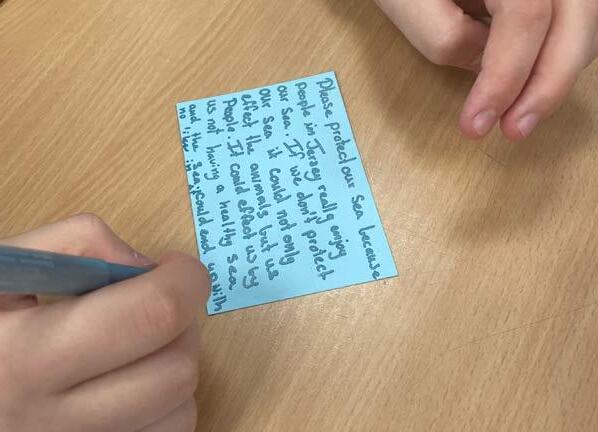 Please protect our Sea because
people in Jersey really enjoy
our Sea. If we don't protect
our Sea it could not only
effect the animals but us
People. It could effect us by
us not having a healthy Sea
and the Sea could end up with
no life in